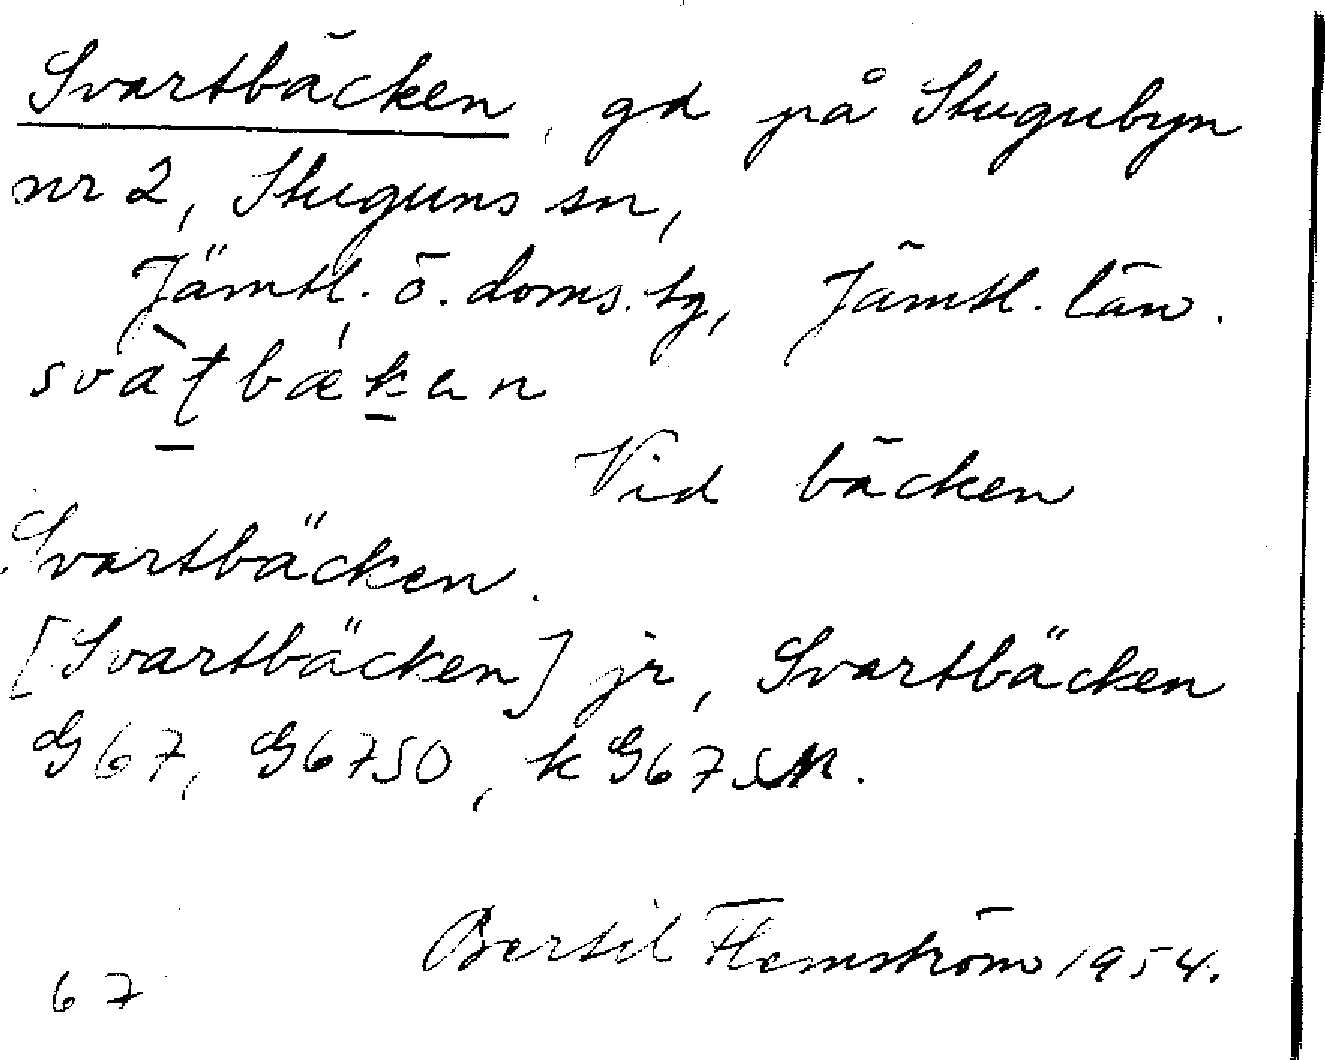 Svartbäcken, gd på Stugubyn
nr 2, Stuguns sn,
Jämtl. ö. doms. tg, Jämtl. län.
svàt̠bæ'k̠an
Vid bäcken
Svartbäcken.
[Svartbäcken] jr, Svartbäcken
G67, G67SO, k G67SM.
Bertil Flemström 1954.
67